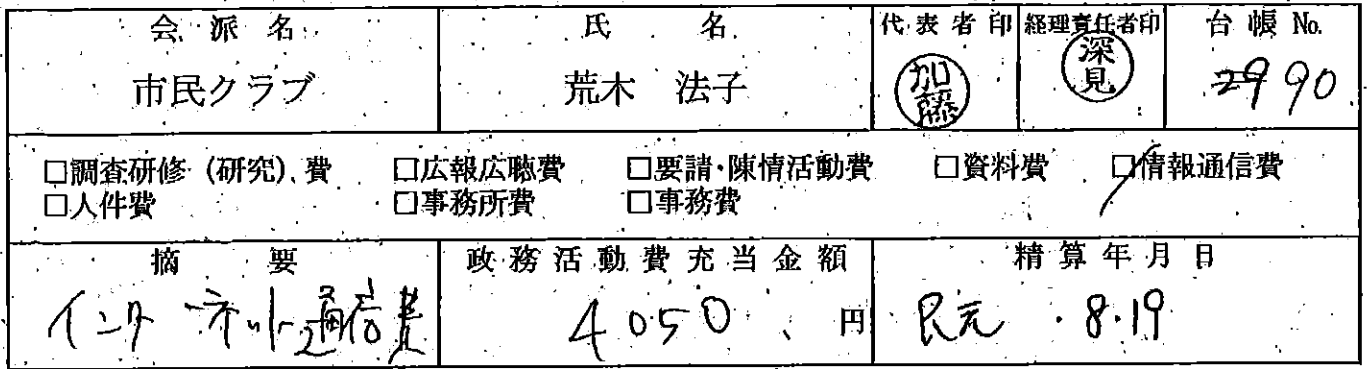 会派名 氏名 代表者印 経理責任者印 台帳 No.
市民クラブ 荒木 法子 加藤 深見 29 90
□調査研修（研究）費 □広報広聴費 □要請・陳情活動費 □資料費 □情報通信費
□人件費 □事務所費 □事務費
摘要 政務活動費充当金額 精算年月日
インターネット通信費 4050 円 R元.8.19